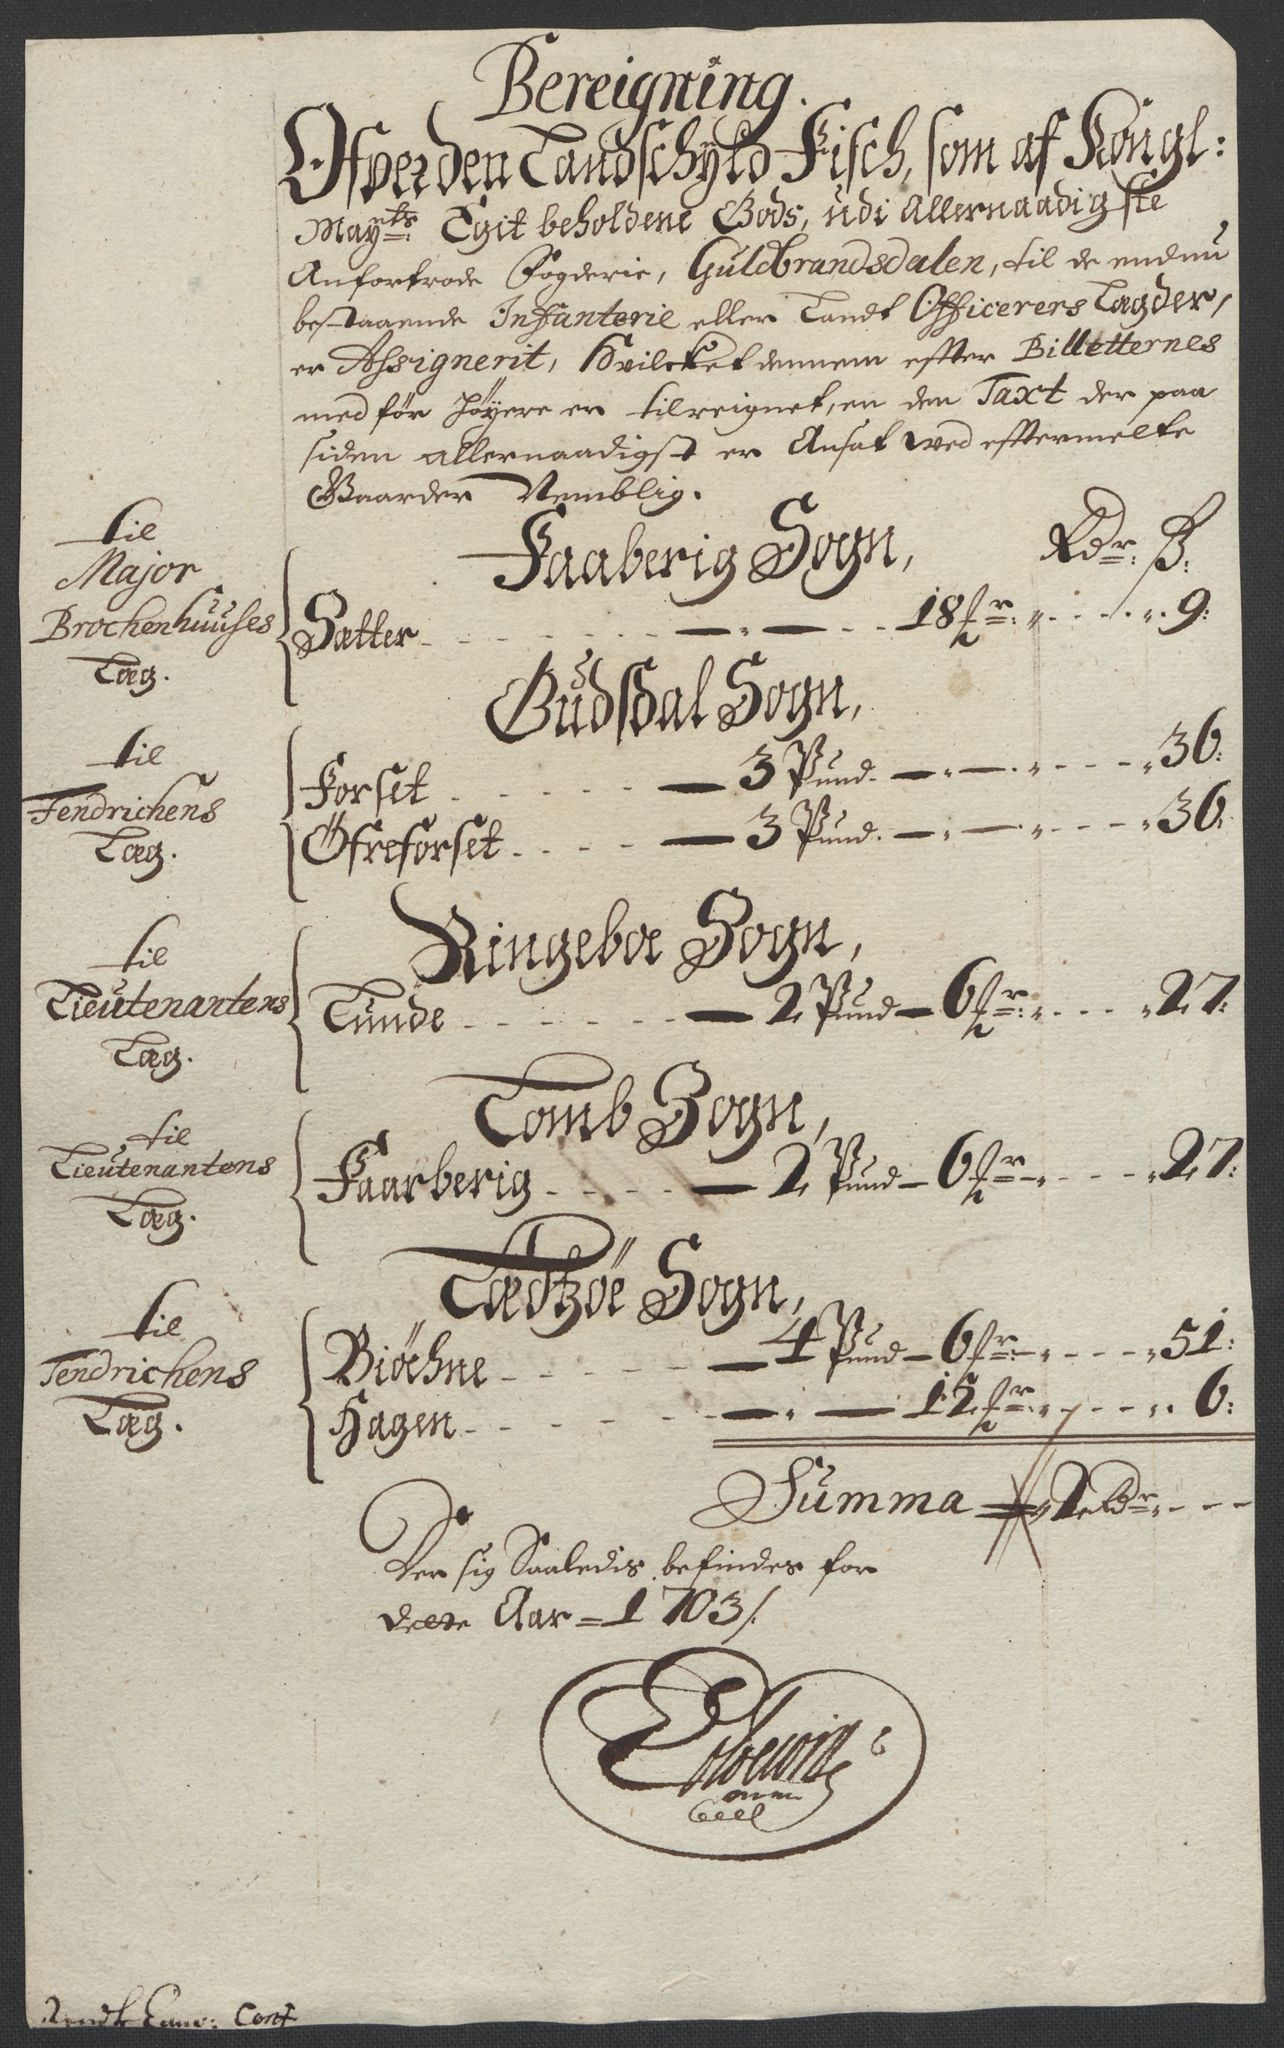 Bereigning.
Ofver den Landschÿld Fisch, som af Kongl:
Mayts: Egit beholdene Gods, udi Allernaadigste
Anfortrode Fogderie, Guldbrandsdalen, til de endnu
bestaaende Infanterie eller Landt Officerers Lægder,
er Assignerit, Hvilcket dennem effter Billetternes
med för höÿere er tilreignet, en den Taxt der paa
siden allernaadigst er Ansat wed efftermelte
Gaarder Nemblig.
Faaberig Sogn, Rdr: ß:
til
Major
Brochenhuuses
Læg.
Sætter 18 fr: 9:
Gudsdal Sogn,
til
Fendrichens
Læg.
Forset 3 Pund 36:
Öfreforset 3 Pund 36:
Ringeboe Sogn,
til
Lieutenantens
Læg.
Lunde 2 Pund 6 fr: 27:
Lomb Sogn,
til
Lieutenantens
Læg.
Faarberig 2 Pund 6 fr: 27:
Lædtzöe Sogn,
til
Fendrichens
Læg.
Biöchne 4 Pund 6 fr: 51:
Hagen 12 fr: 6:
Summa 2 Rdr
Der sig Saaledis befindes for
dette Aar 1703/.
Cont